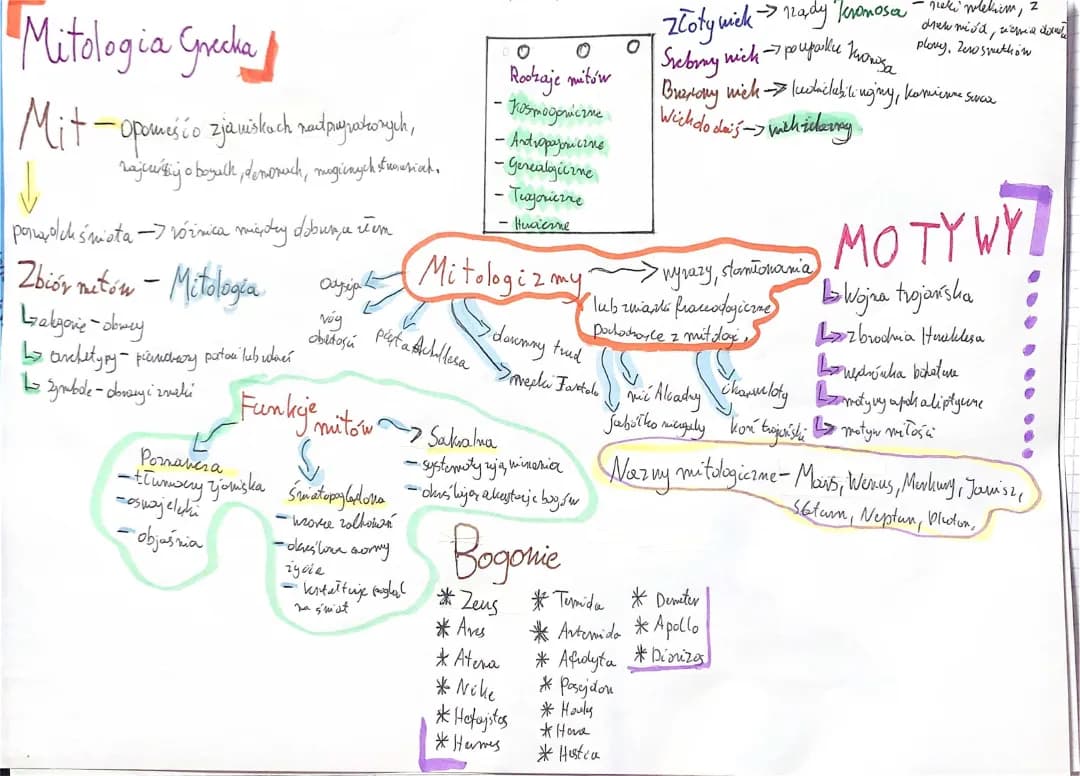 Mitologia Grecka
Mit - opowieść o zjawiskach nadprzyrodzonych,
najczęściej o bogach, demonach, magicznych stworzeniach.
porządek świata → różnica między dobrym a złem
Zbiór mitów - Mitologia
alegorie - obrazy
archetypy - pierwotny postaci lub zdarzeń
Symbole - obrazy i znaki
Rodzaje mitów
- Kosmogoniczne
- Antropogoniczne
- Genealogiczne
- Teogoniczne
- Heroiczne
Złoty wiek → rządy Kronosa - rzeki mlekiem, z
drzew miód, ziemia
plony, zero smutków
Srebrny wiek → po upadku Kronosa
Brązowy wiek → ludzie lubili wojny, kamienne serca
Wiek do dziś → wiek żelazny
Mitologizmy → wyrazy, sformułowania
lub związki frazeologiczne
pochodzące z mitologi.
róg
obfitości
pięta Achillesa
daremny trud
męki Tantala
jabłko niezgody
nić Ariadny
koń trojański
ikarowe loty
MOTYWY
Wojna trojańska
zbrodnia Heraklesa
wędrówka bohatera
motywy apokaliptyczne
motyw miłości
Funkje
mitów
Poznawcza
- tłumaczy zjawiska
- oswaja lęki
- objaśnia
Światopoglądowa
- wzorce zachowań
- określone normy
życia
- kształtuje pogląd
na świat
Sakralna
- systematyzują wierzenia
- określają akceptację bogów
Nazwy mitologiczne - Mars, Wenus, Merkury, Jowisz,
Saturn, Neptun, Pluton,
Bogowie
* Zeus
* Ares
* Atena
* Nike
* Hefajstos
* Hermes
* Temida
* Artemida
* Afrodyta
* Posejdon
* Hades
* Hera
* Hestia
* Demeter
* Apollo
* Dionizos